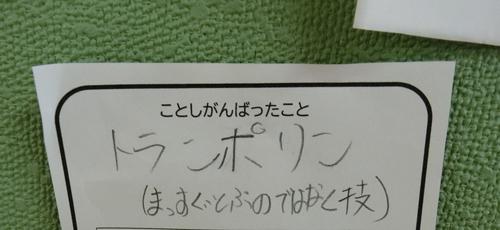 ことしがんばったこと
トランポリン
(まっすぐとぶのではなく技)